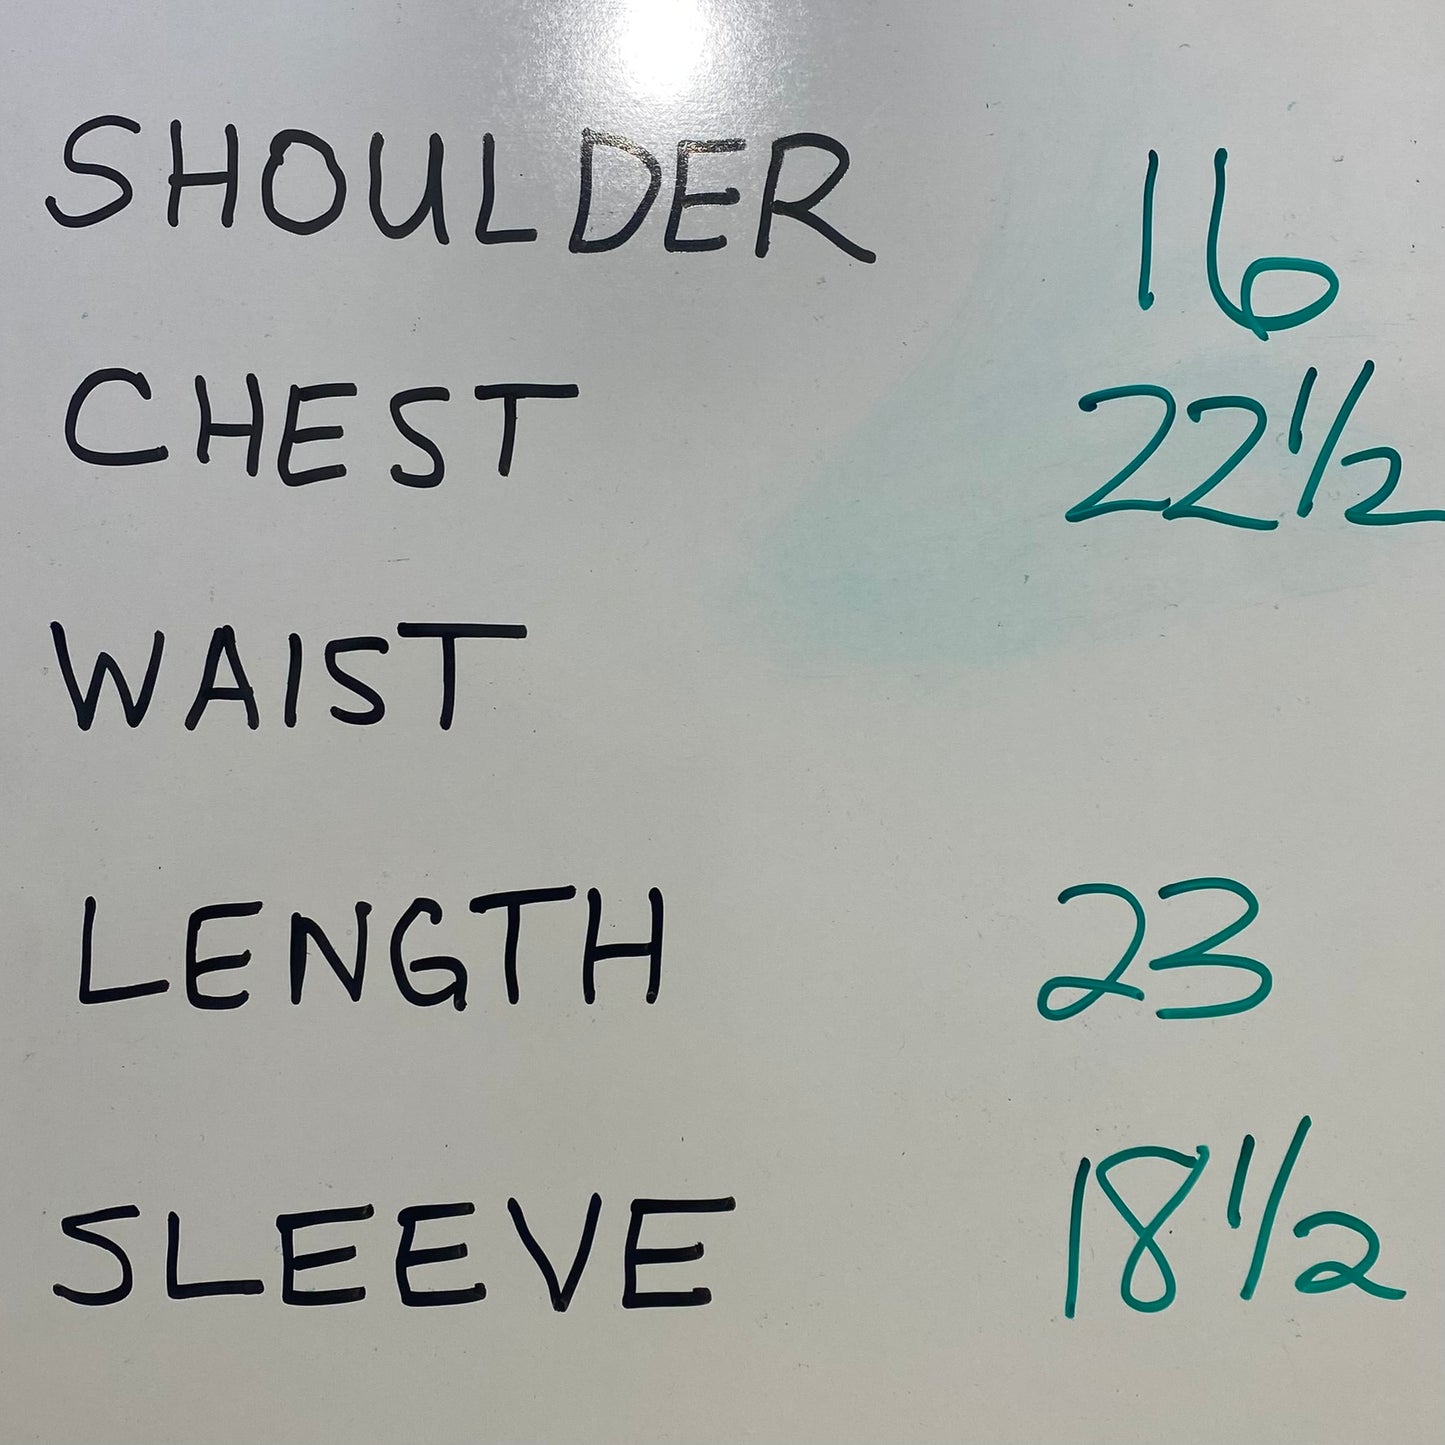 SHOULDER 16
CHEST 22 1/2
WAIST
LENGTH 23
SLEEVE 18 1/2